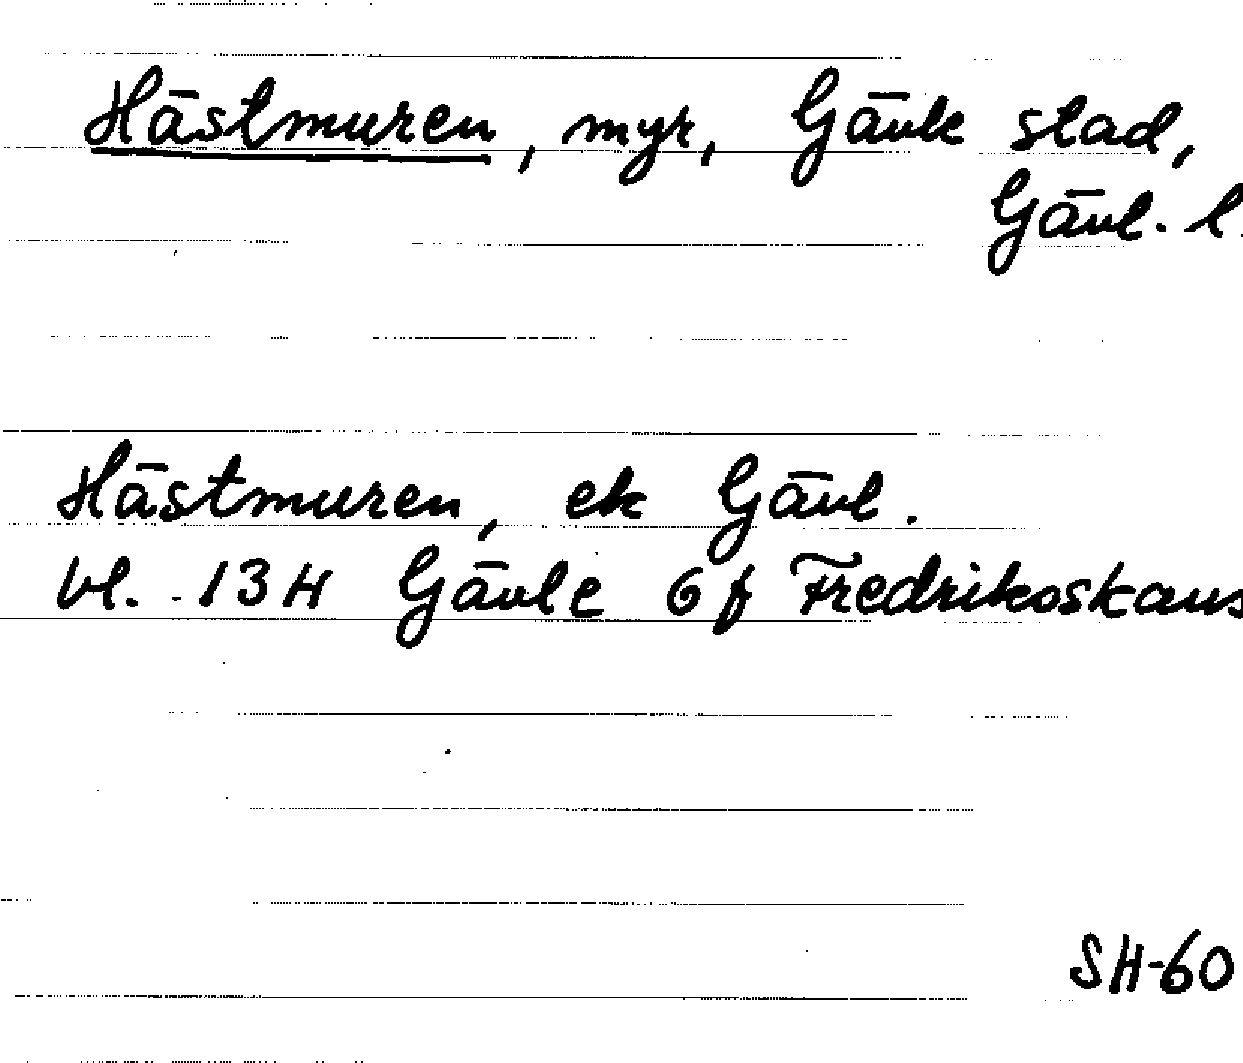 Hästmuren, myr, Gävle stad,
Gävl. l.
Hästmuren, ek Gävl.
bl. 13H Gävle 6f Fredrikoskans
SH-60